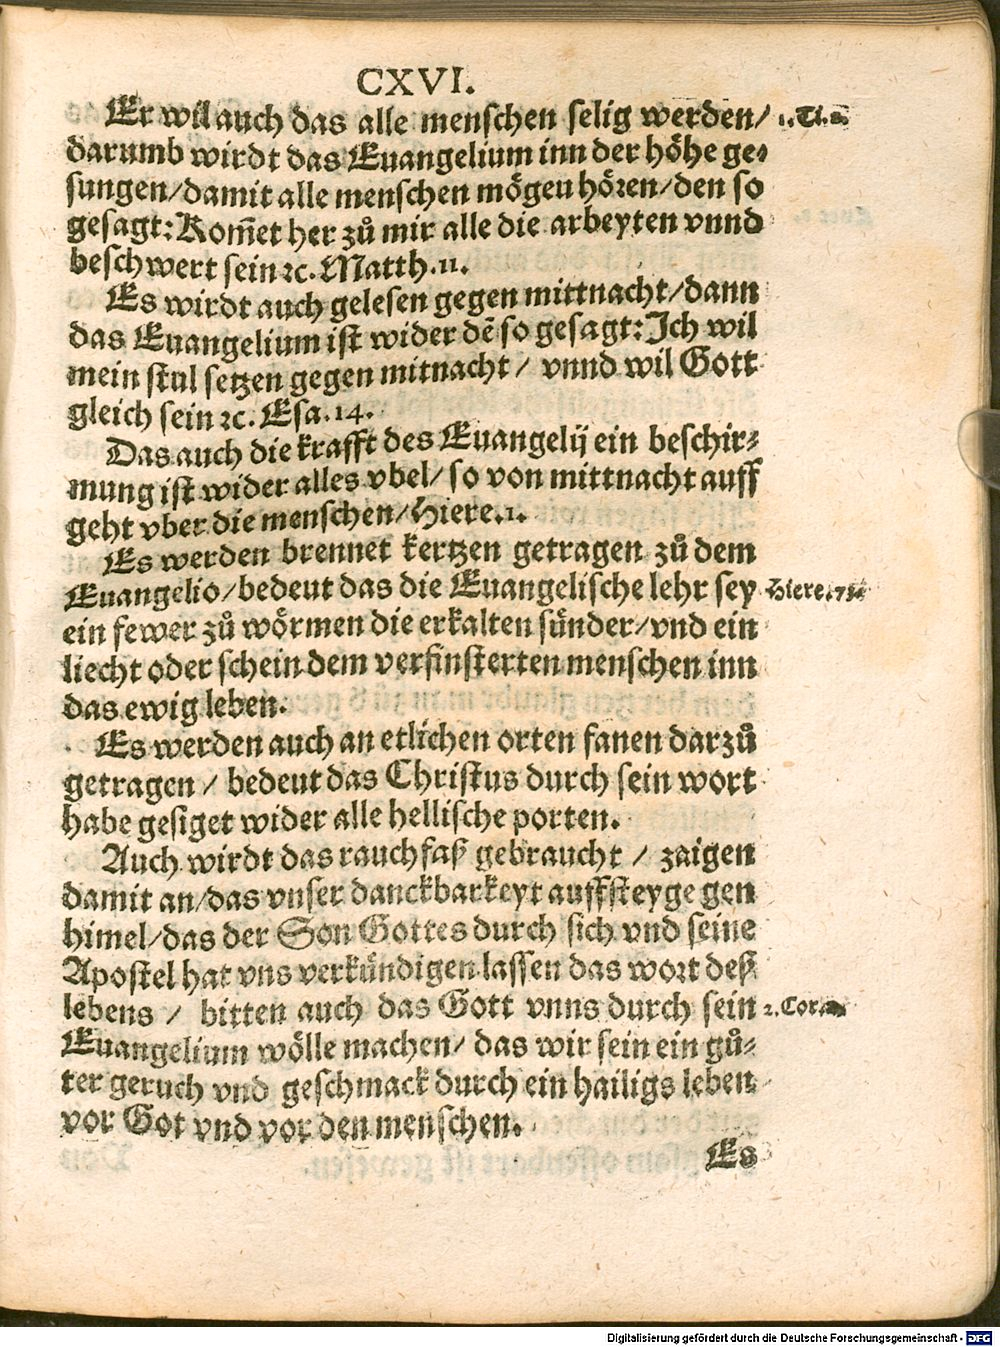 CXVI.
Er wil auch das alle menschen selig werden/ 1. Ti. 2.
darumb wirdt das Euangelium inn der höhe ge-
sungen/damit alle menschen mögen hören/den so
gesagt: Kom̄et her zů mir alle die arbeyten vnnd
beschwert sein ꝛc. Matth. 11.
Es wirdt auch gelesen gegen mittnacht/dann
das Euangelium ist wider dē so gesagt: Ich wil
mein stul setzen gegen mitnacht / vnnd wil Gott
gleich sein ꝛc. Esa. 14.
Das auch die krafft des Euangelij ein beschir-
mung ist wider alles vbel/ so von mittnacht auff
geht vber die menschen/Hiere. 1.
Es werden brennet kertzen getragen zů dem
Euangelio/bedeut das die Euangelische lehr sey Hiere.
ein fewer zů wörmen die erkalten sünder/vnd ein
liecht oder schein dem verfinsterten menschen inn
das ewig leben.
Es werden auch an etlichen orten fanen darzů
getragen / bedeut das Christus durch sein wort
habe gesiget wider alle hellische porten.
Auch wirdt das rauchfaß gebraucht / zaigen
damit an/das vnser danckbarkeyt auffsteyge gen
himel/das der Son Gottes durch sich vnd seine
Apostel hat vns verkündigen lassen das wort deß
lebens / bitten auch das Gott vnns durch sein 2. Cor.
Euangelium wölle machen/ das wir sein ein gů-
ter geruch vnd geschmack durch ein hailigs leben
vor Got vnd vor den menschen.
Es
Digitalisierung gefördert durch die Deutsche Forschungsgemeinschaft - DFG